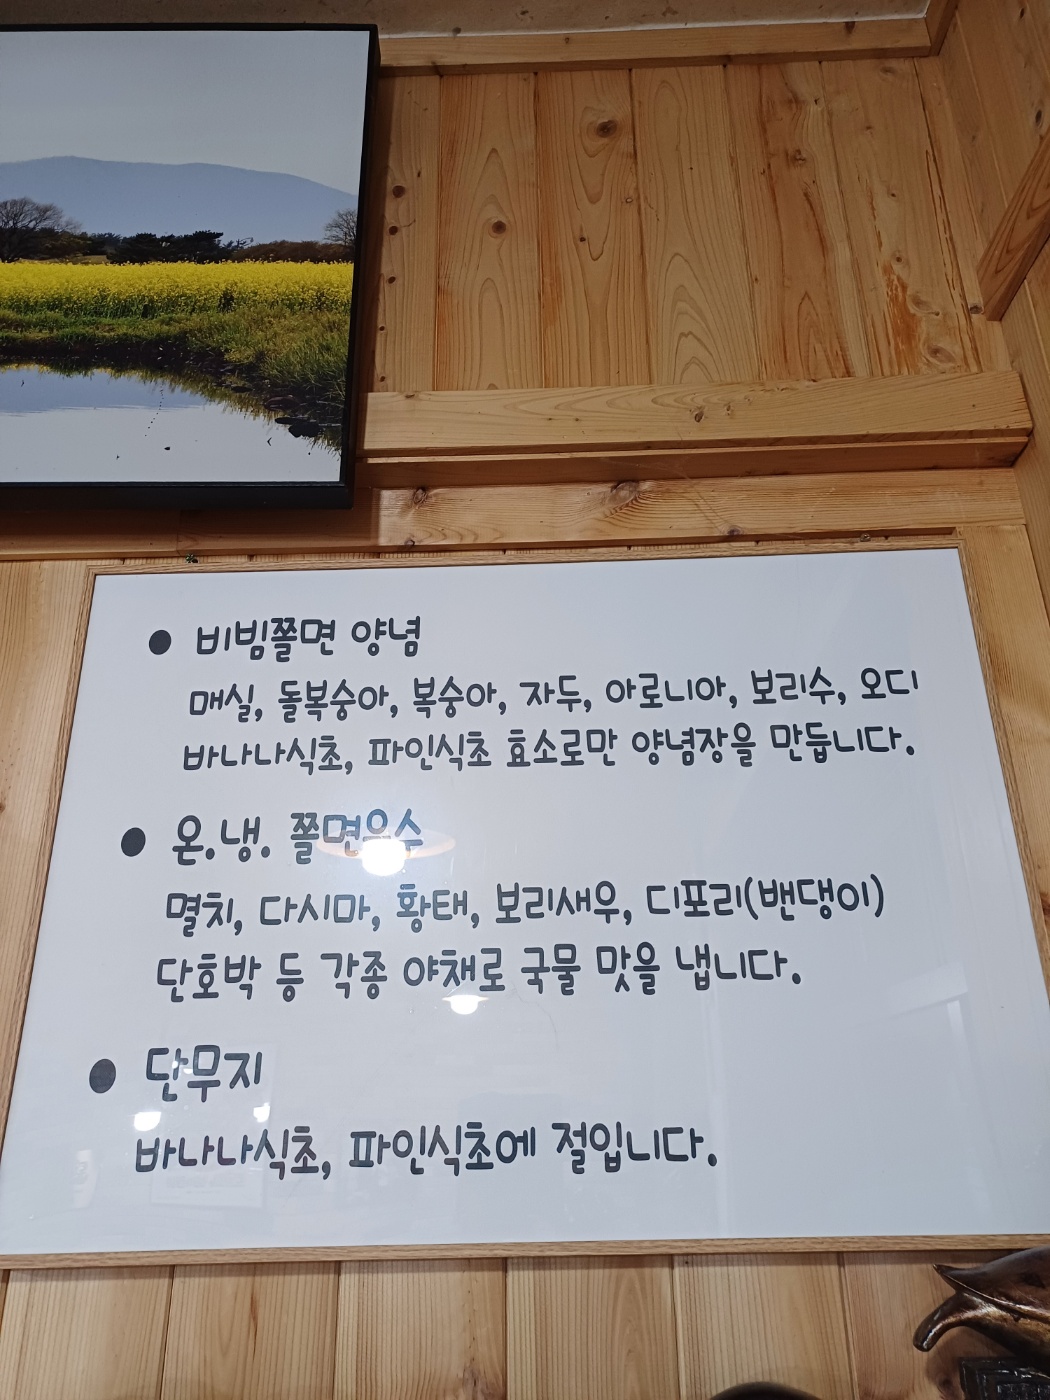 ● 비빔쫄면 양념
매실, 돌복숭아, 복숭아, 자두, 아로니아, 보리수, 오디
바나나식초, 파인식초 효소로만 양념장을 만듭니다.
● 온.냉. 쫄면육수
멸치, 다시마, 황태, 보리새우, 디포리(밴댕이)
단호박 등 각종 야채로 국물 맛을 냅니다.
● 단무지
바나나식초, 파인식초에 절입니다.